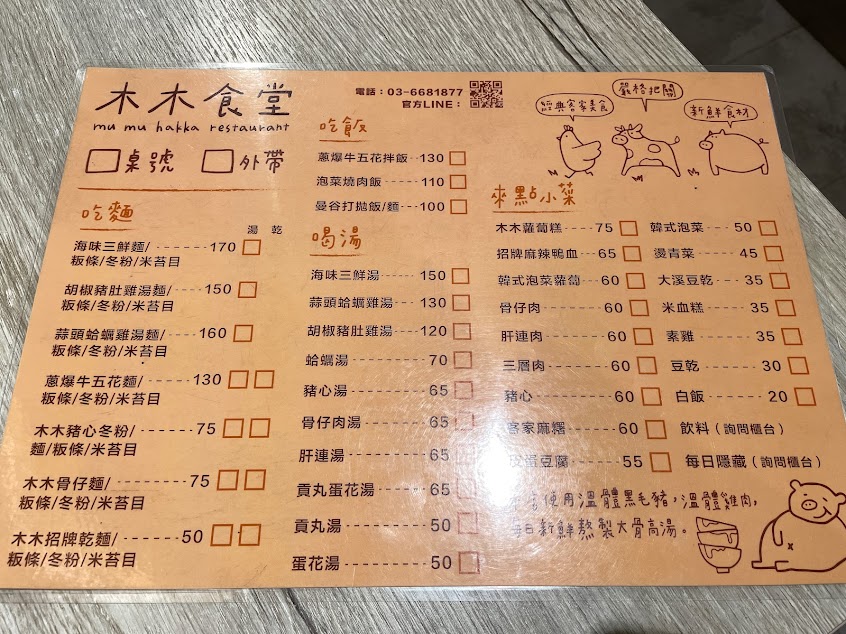 木木食堂
mu mu hakka restaurant
桌號 外帶
電話：03-6681877
官方LINE：
經典客家美食
嚴格把關
新鮮食材
吃麵
湯 乾
海味三鮮麵/-------170
粄條/冬粉/米苔目
胡椒豬肚雞湯麵/-----150
粄條/冬粉/米苔目
蒜頭蛤蠣雞湯麵/----160
粄條/冬粉/米苔目
蔥爆牛五花麵/------130
粄條/冬粉/米苔目
木木豬心冬粉/-------75
麵/粄條/米苔目
木木骨仔麵/--------75
粄條/冬粉/米苔目
木木招牌乾麵/-------50
粄條/冬粉/米苔目
吃飯
蔥爆牛五花拌飯--130
泡菜燒肉飯------110
曼谷打拋飯/麵---100
喝湯
海味三鮮湯------150
蒜頭蛤蠣雞湯----130
胡椒豬肚雞湯----120
蛤蠣湯----------70
豬心湯----------65
骨仔肉湯--------65
肝連湯----------65
貢丸蛋花湯------65
貢丸湯----------50
蛋花湯----------50
來點小菜
木木蘿蔔糕----75
招牌麻辣鴨血--65
韓式泡菜蘿蔔--60
骨仔肉--------60
肝連肉--------60
三層肉--------60
豬心----------60
客家麻糬------60
皮蛋豆腐------55
韓式泡菜----50
燙青菜------45
大溪豆乾----35
米血糕------35
素雞--------35
豆乾--------30
白飯--------20
飲料（詢問櫃台）
每日隱藏（詢問櫃台）
使用溫體黑毛豬，溫體雞肉，
每日新鮮熬製大骨高湯。